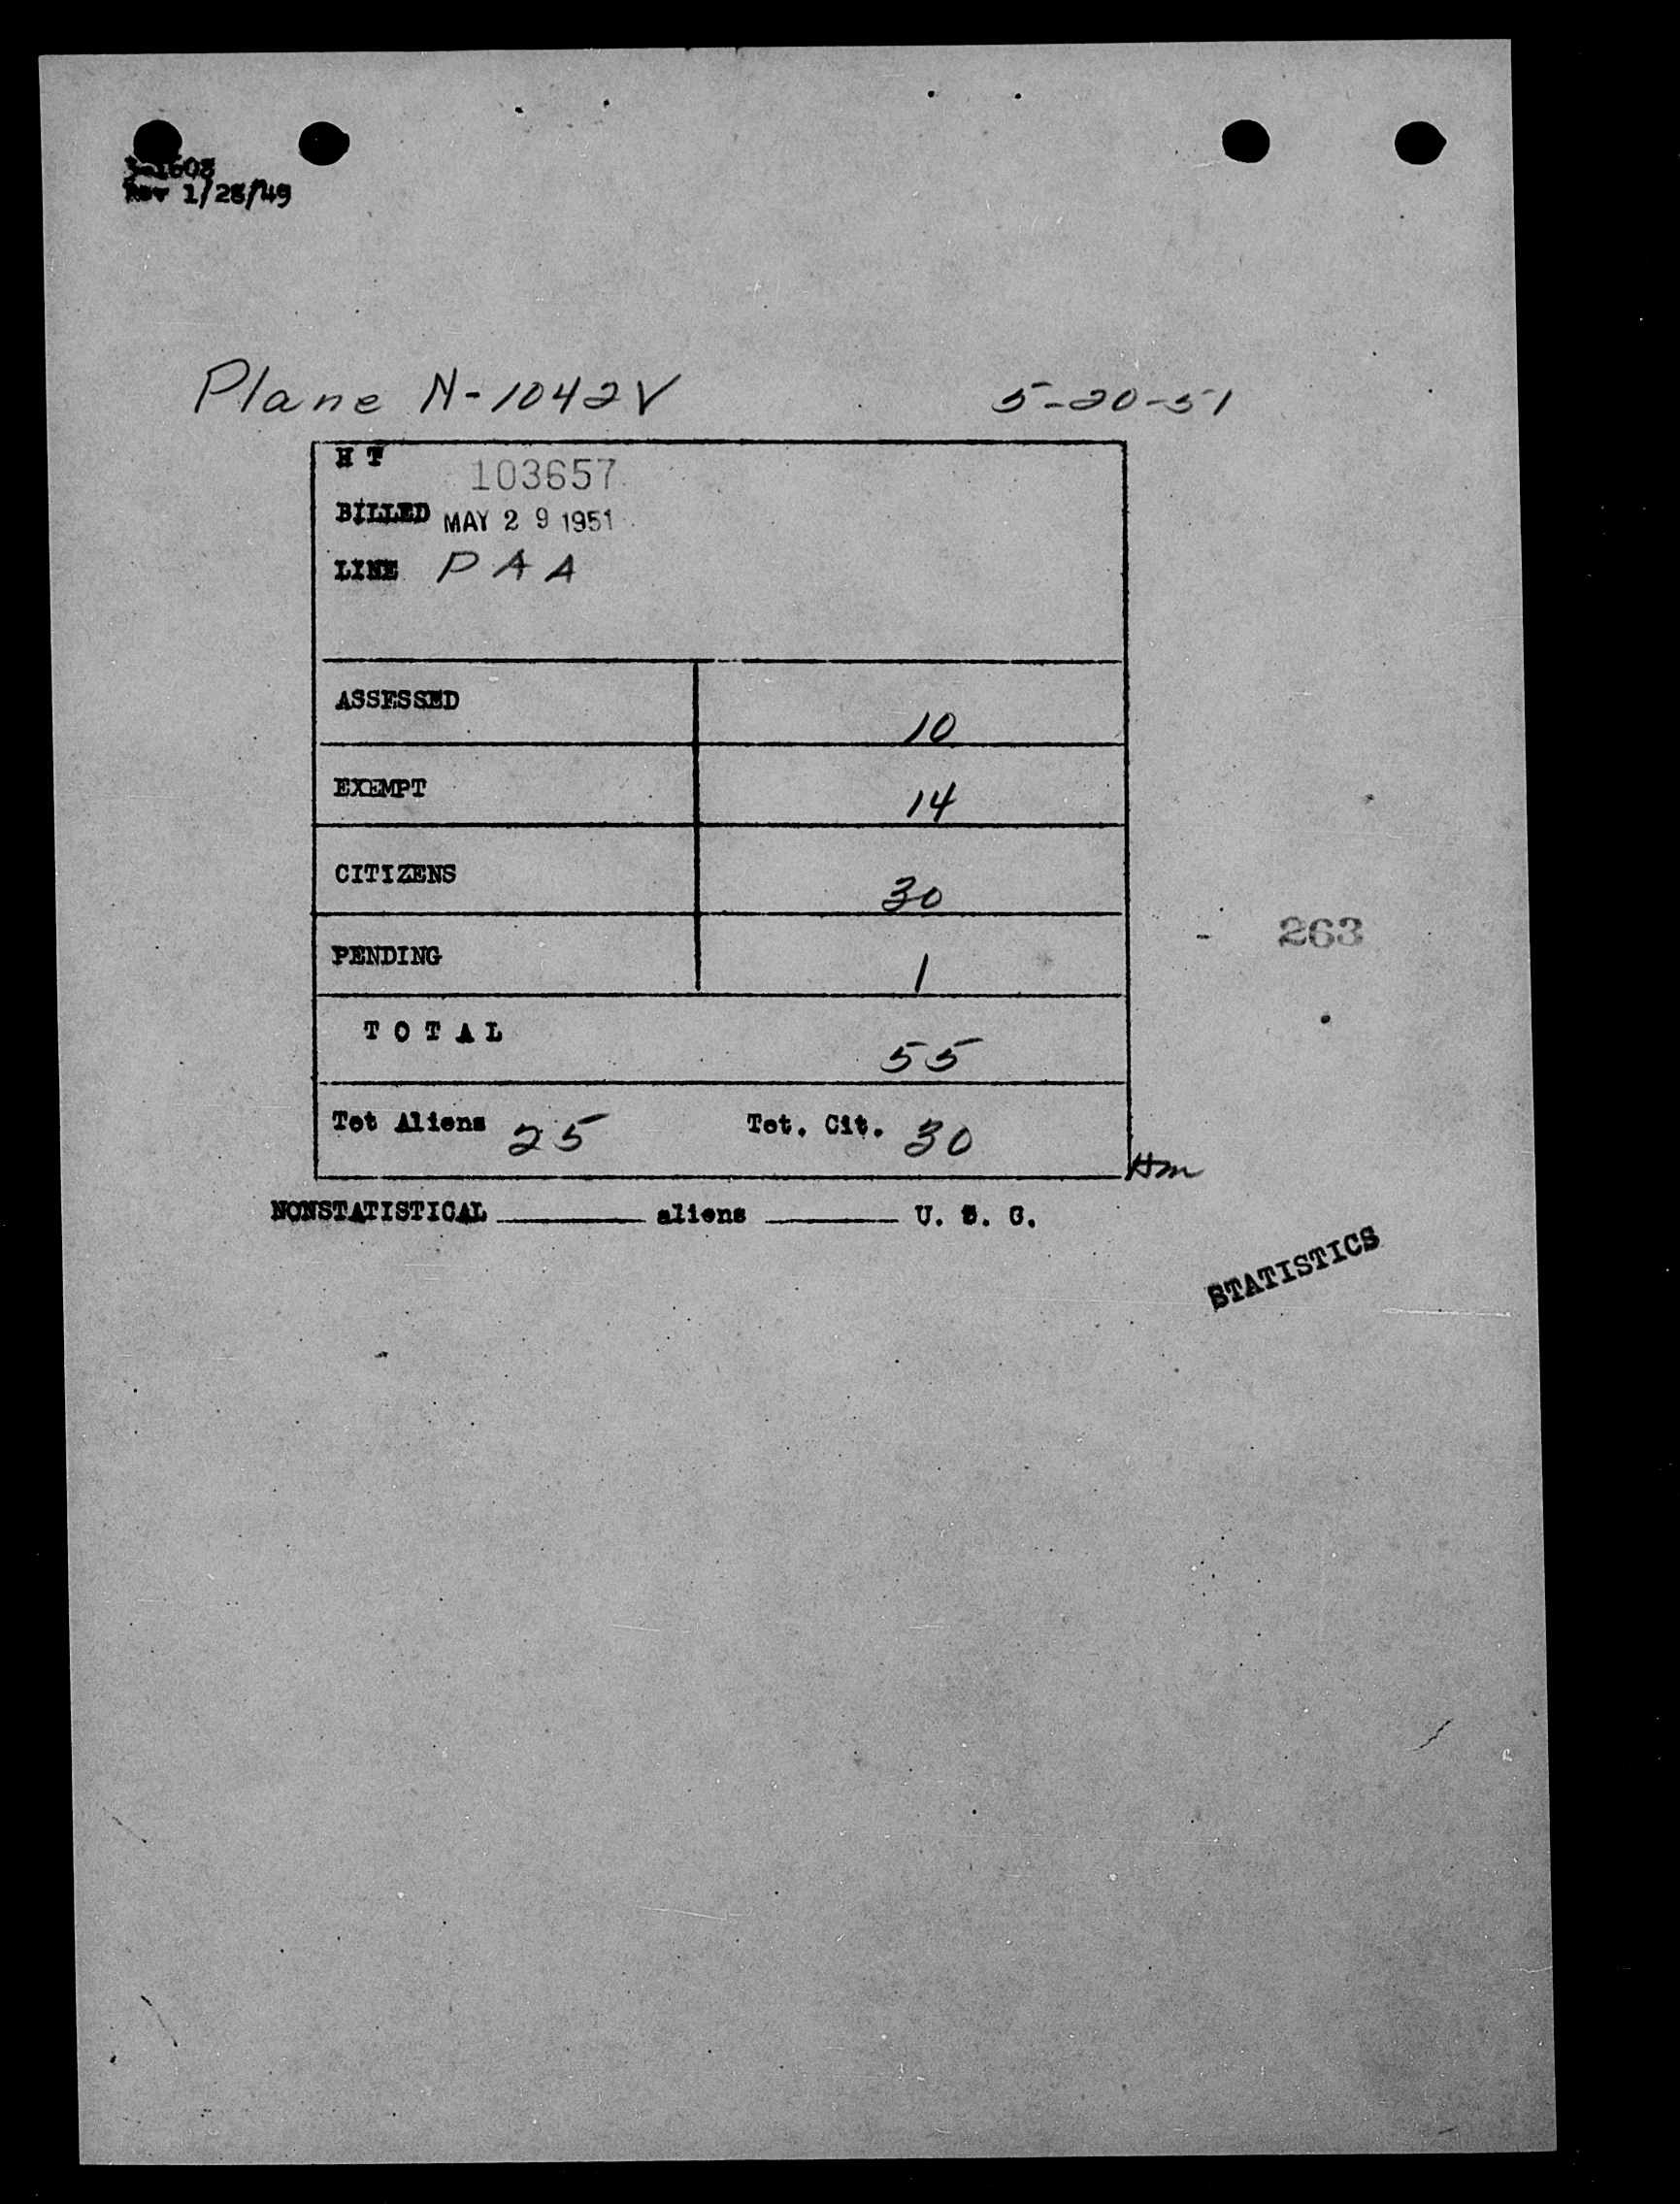 Rev 1/28/49
Plane N-1042V 5-20-51
H T 103657
BILLED MAY 29 1951
LINE PAA
ASSESSED 10
EXEMPT 14
CITIZENS 30
- 263
PENDING 1
TOTAL 55
Tot Aliens 25 Tot. Cit. 30
Hm
NONSTATISTICAL ________ aliens ________ U. S. C.
STATISTICS